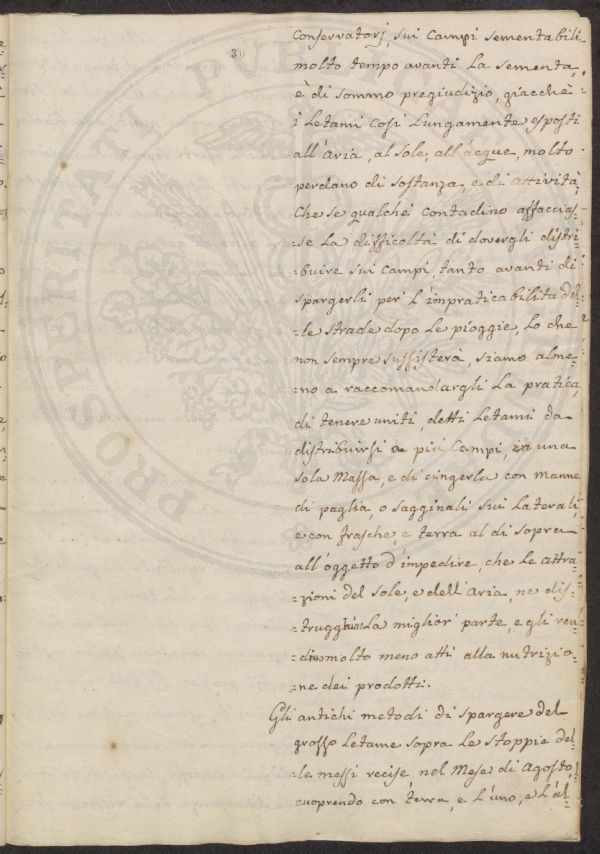 30
PROSPERITATI PUBLICAE
conservatorj, sui Campi sementabili
molto tempo avanti la sementa,
è di sommo pregiudizio, giacchè
i Letami così lungamente esposti
all'aria, al sole, all'acque, molto
perdano di sostanza, e di attività,
Che se qualche Contadino affaccias=
=se la difficoltà di dovergli distri=
=buire sui campi, tanto avanti di
spargerli per l'impraticabilità del=
=le strade dopo le pioggie, lo che
non sempre sussisterà, siamo alme=
=no a raccomandargli la pratica,
di tenere uniti, detti Letami da
distribuirsi a più Campi, in una
sola Massa, e di cingerla con manne
di paglia, o sagginali sui laterali,
e con frasche, e terra al di sopra
all'oggetto d'impedire, che le attra=
=zioni del sole, e dell'aria, ne dis=
=trugghino la miglior parte, e gli ren=
=dino molto meno atti alla nutrizio=
=ne dei prodotti.
Gli antichi metodi di spargere del
grosso Letame sopra le stoppie del=
=le messi recise nel Mese di Agosto,
cuoprendo con terra, e l'uno, e l'al=